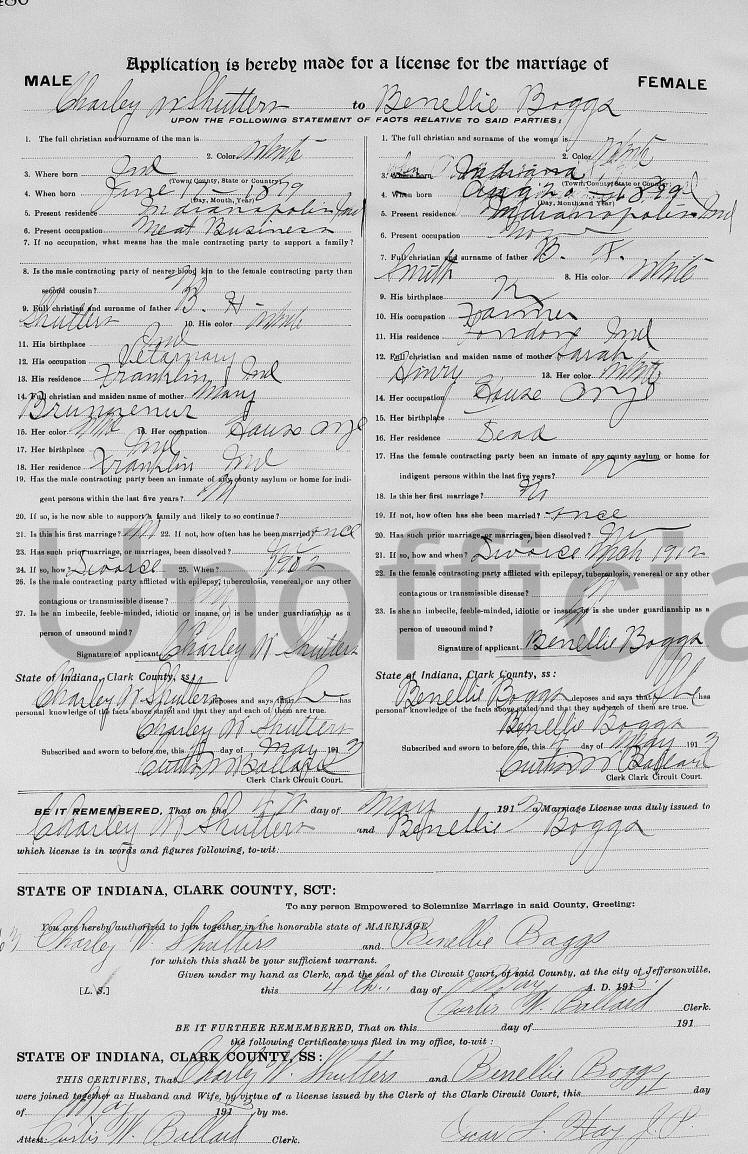 480
Application is hereby made for a license for the marriage of
MALE FEMALE
Charley W Shutters to Benellie Boggs
UPON THE FOLLOWING STATEMENT OF FACTS RELATIVE TO SAID PARTIES:
1. The full christian and surname of the man is
2. Color White
3. Where born Ind
(Town, County, State or Country)
4. When born June 1879
(Day, Month, Year)
5. Present residence Indianapolis Ind
6. Present occupation Meat Business
7. If no occupation, what means has the male contracting party to support a family?
8. Is the male contracting party of nearer blood kin to the female contracting party than
second cousin? No
9. Full christian and surname of father B. H.
Shutters 10. His color White
11. His birthplace Ind
12. His occupation Vetarnary
13. His residence Franklin Ind
14. Full christian and maiden name of mother Mary
15. Her color White 16. Her occupation House
17. Her birthplace Ind
18. Her residence Franklin Ind
19. Has the male contracting party been an inmate of any county asylum or home for indi-
gent persons within the last five years?
20. If so, is he now able to support a family and likely to continue?
21. Is this his first marriage? 22. If not, how often has he been married? once
23. Has such prior marriage, or marriages, been dissolved?
24. If so, how? Divorce 25. When?
26. Is the male contracting party afflicted with epilepsy, tuberculosis, venereal, or any other
contagious or transmissible disease?
27. Is he an imbecile, feeble-minded, idiotic or insane, or is he under guardianship as a
person of unsound mind?
Signature of applicant Charley W Shutters
State of Indiana, Clark County, ss:
Charley W Shutters deposes and says that he has
personal knowledge of the facts above stated and that they and each of them are true.
Charley W Shutters
Subscribed and sworn to before me, this day of May 1913
Curtis W Ballard
Clerk Clark Circuit Court.
1. The full christian and surname of the woman is
2. Color White
3. Where born Indiana
(Town, County, State or Country)
4. When born Aug
(Day, Month and Year)
5. Present residence Indianapolis Ind
6. Present occupation
7. Full christian and surname of father B. F.
Smith 8. His color White
9. His birthplace
10. His occupation Farmer
11. His residence Ind
12. Full christian and maiden name of mother Sarah
Henry 13. Her color White
14. Her occupation House
15. Her birthplace
16. Her residence Dead
17. Has the female contracting party been an inmate of any county asylum or home for
indigent persons within the last five years?
18. Is this her first marriage? No
19. If not, how often has she been married? once
20. Has such prior marriage, or marriages, been dissolved?
21. If so, how and when? Divorce Mch 1912
22. Is the female contracting party afflicted with epilepsy, tuberculosis, venereal or any other
contagious or transmissible disease?
23. Is she an imbecile, feeble-minded, idiotic or insane, or is she under guardianship as a
person of unsound mind?
Signature of applicant Benellie Boggs
State of Indiana, Clark County, ss:
Benellie Boggs deposes and says that she has
personal knowledge of the facts above stated and that they and each of them are true.
Benellie Boggs
Subscribed and sworn to before me, this day of May 1913
Curtis W Ballard
Clerk Clark Circuit Court.
BE IT REMEMBERED, That on the 4th day of May 1913 a Marriage License was duly issued to
Charley W Shutters and Benellie Boggs
which license is in words and figures following, to-wit:
STATE OF INDIANA, CLARK COUNTY, SCT:
To any person Empowered to Solemnize Marriage in said County, Greeting:
You are hereby authorized to join together in the honorable state of MARRIAGE
Charley W. Shutters and Benellie Boggs
for which this shall be your sufficient warrant.
Given under my hand as Clerk, and the seal of the Circuit Court, of said County, at the city of Jeffersonville,
[L. S.] this 4th day of May A. D. 1913
Curtis W. Ballard Clerk.
BE IT FURTHER REMEMBERED, That on this day of 191
the following Certificate was filed in my office, to-wit:
STATE OF INDIANA, CLARK COUNTY, SS:
THIS CERTIFIES, That Charley W. Shutters and Benellie Boggs
were joined together as Husband and Wife, by virtue of a license issued by the Clerk of the Circuit Court, this 4 day
of May 1913 by me.
Attest Curtis W. Ballard Clerk. Oscar L. Hay J. P.
Unofficia